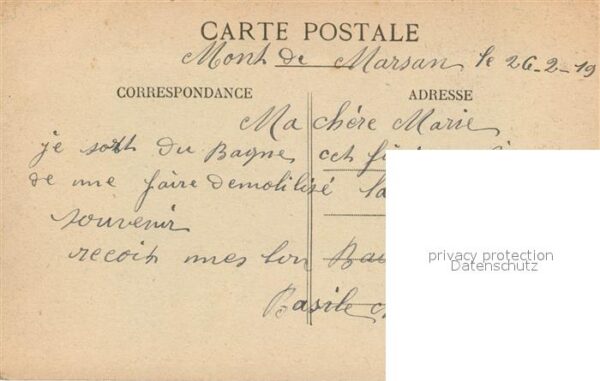 CARTE POSTALE
Mont de Marsan le 26-2-19
CORRESPONDANCE ADRESSE
Ma chère Marie
je sort du Bagne cet
de me faire demolilisé
souvenir
recoit mes bon
Basile
privacy protection
Datenschutz